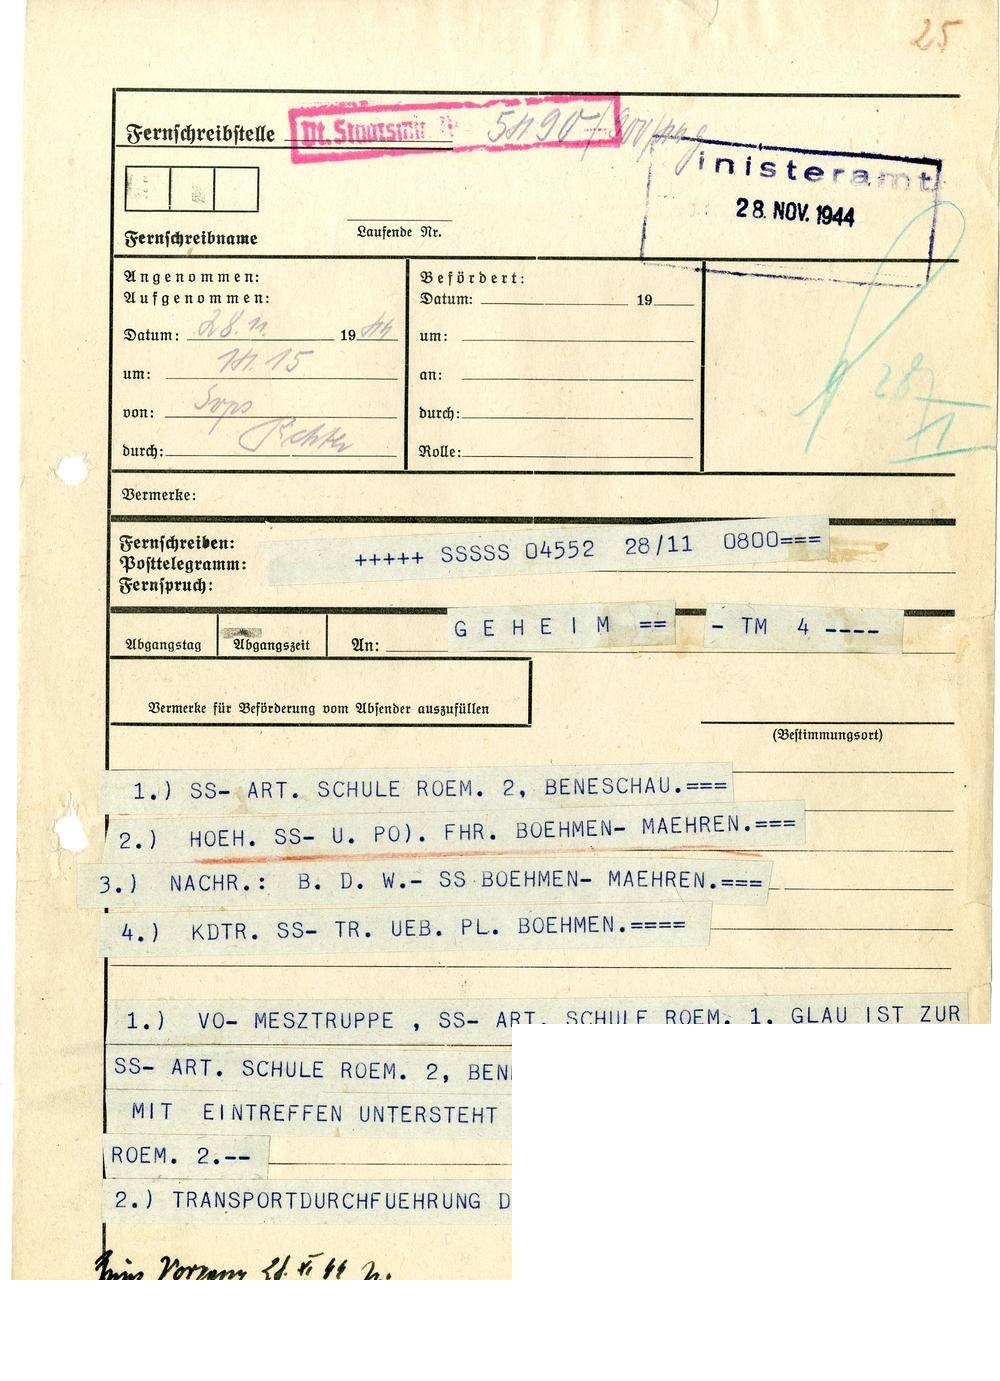 25
Fernschreibstelle
Dt. Staatsmin
5490
inisteramt
28. NOV. 1944
Fernschreibname
Laufende Nr.
Angenommen:
Aufgenommen:
Datum: 28.11. 1944
um: 14.15
von:
durch:
Befördert:
Datum: 19
um:
an:
durch:
Rolle:
28/11
Vermerke:
Fernschreiben:
Posttelegramm:
Fernspruch:
+++++ SSSSS 04552 28/11 0800===
Abgangstag
Abgangszeit
An:
G E H E I M == - TM 4 ----
Vermerke für Beförderung vom Absender auszufüllen
(Bestimmungsort)
1.) SS- ART. SCHULE ROEM. 2, BENESCHAU.===
2.) HOEH. SS- U. PO). FHR. BOEHMEN- MAEHREN.===
3.) NACHR.: B. D. W.- SS BOEHMEN- MAEHREN.===
4.) KDTR. SS- TR. UEB. PL. BOEHMEN.====
1.) VO- MESZTRUPPE , SS- ART. SCHULE ROEM. 1. GLAU IST ZUR
SS- ART. SCHULE ROEM. 2, BEN
MIT EINTREFFEN UNTERSTEHT
ROEM. 2.--
2.) TRANSPORTDURCHFUEHRUNG D
Zum Vorgang 28. XI 44